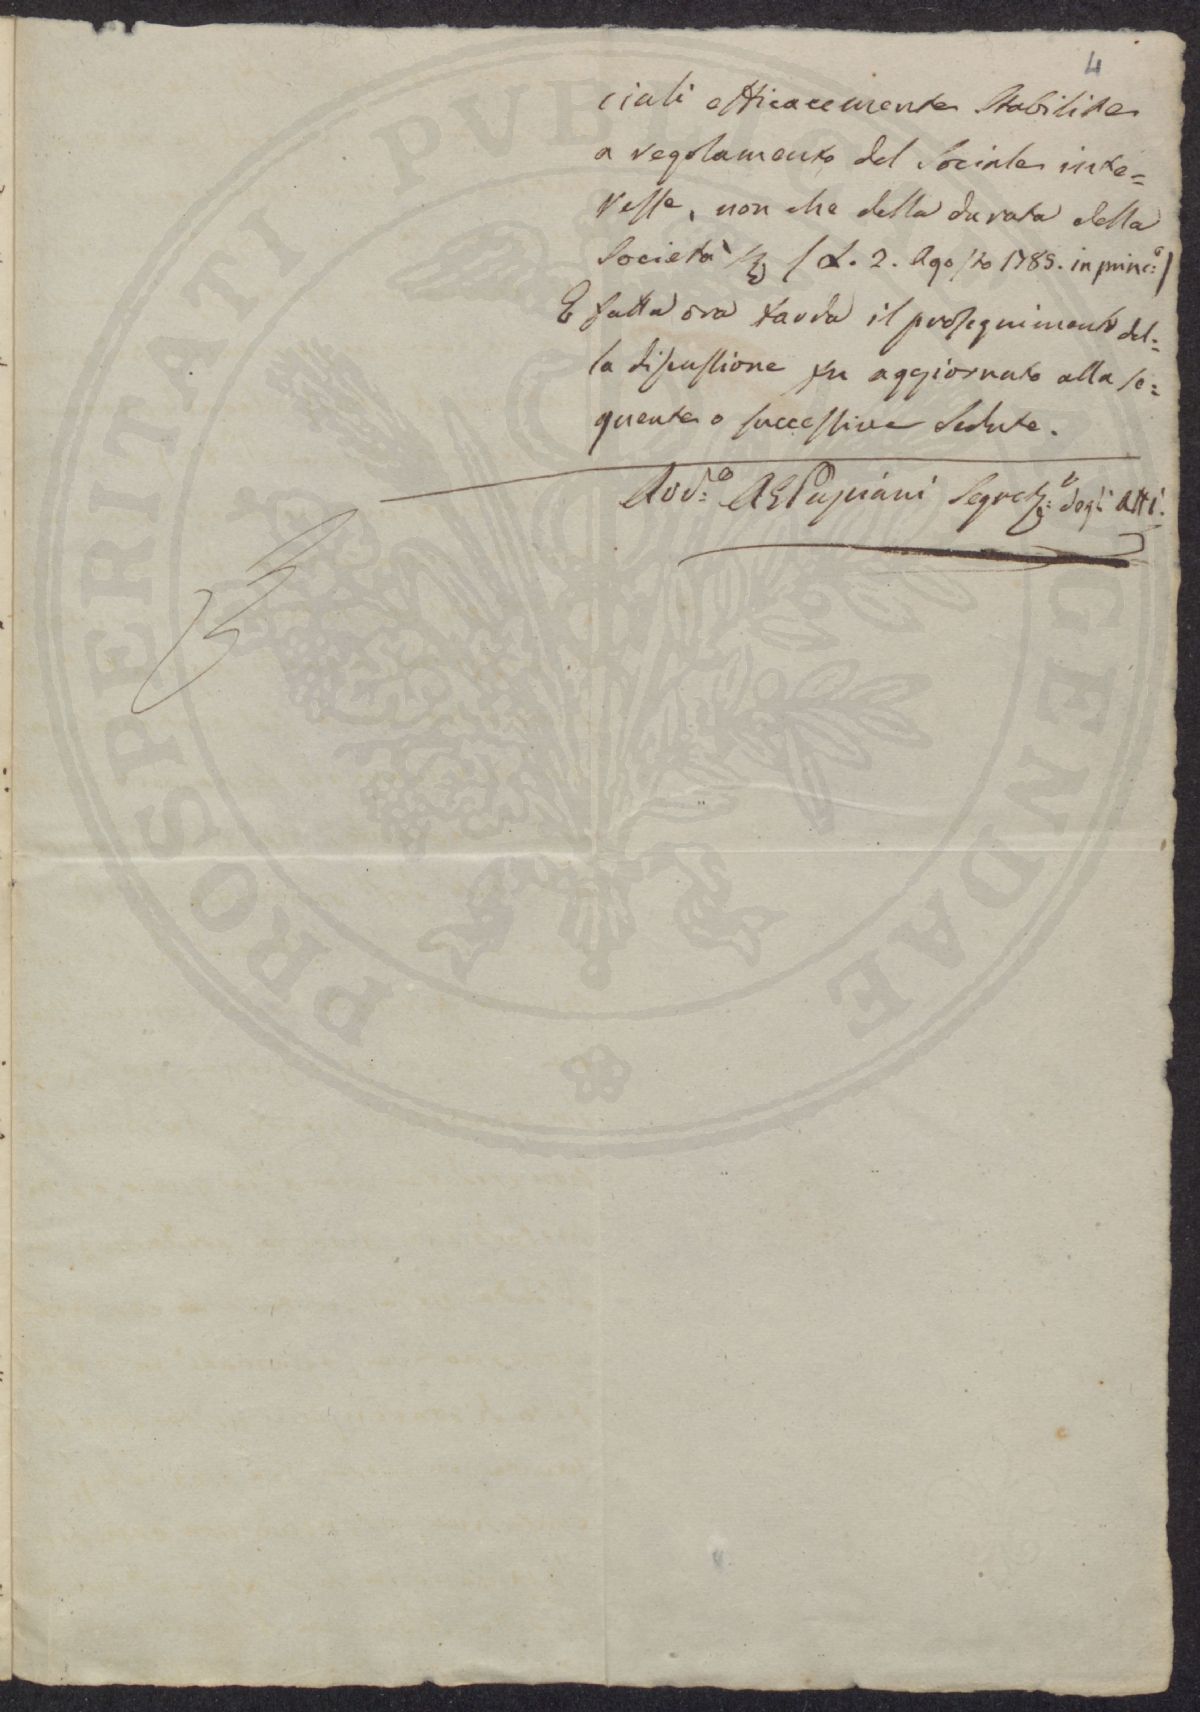 4
ciali efficacemente stabilite
a regolamento del Sociale inte=
resse, non che della durata della
Società (L. 2. Agosto 1785. in princ:º)
E fatta ora tarda il proseguimento del=
la discussione fu aggiornato alla se=
guente o successive Sedute.
Avv:º Segret: degli Atti.
PROSPERITATI PUBLICAE AUGENDAE